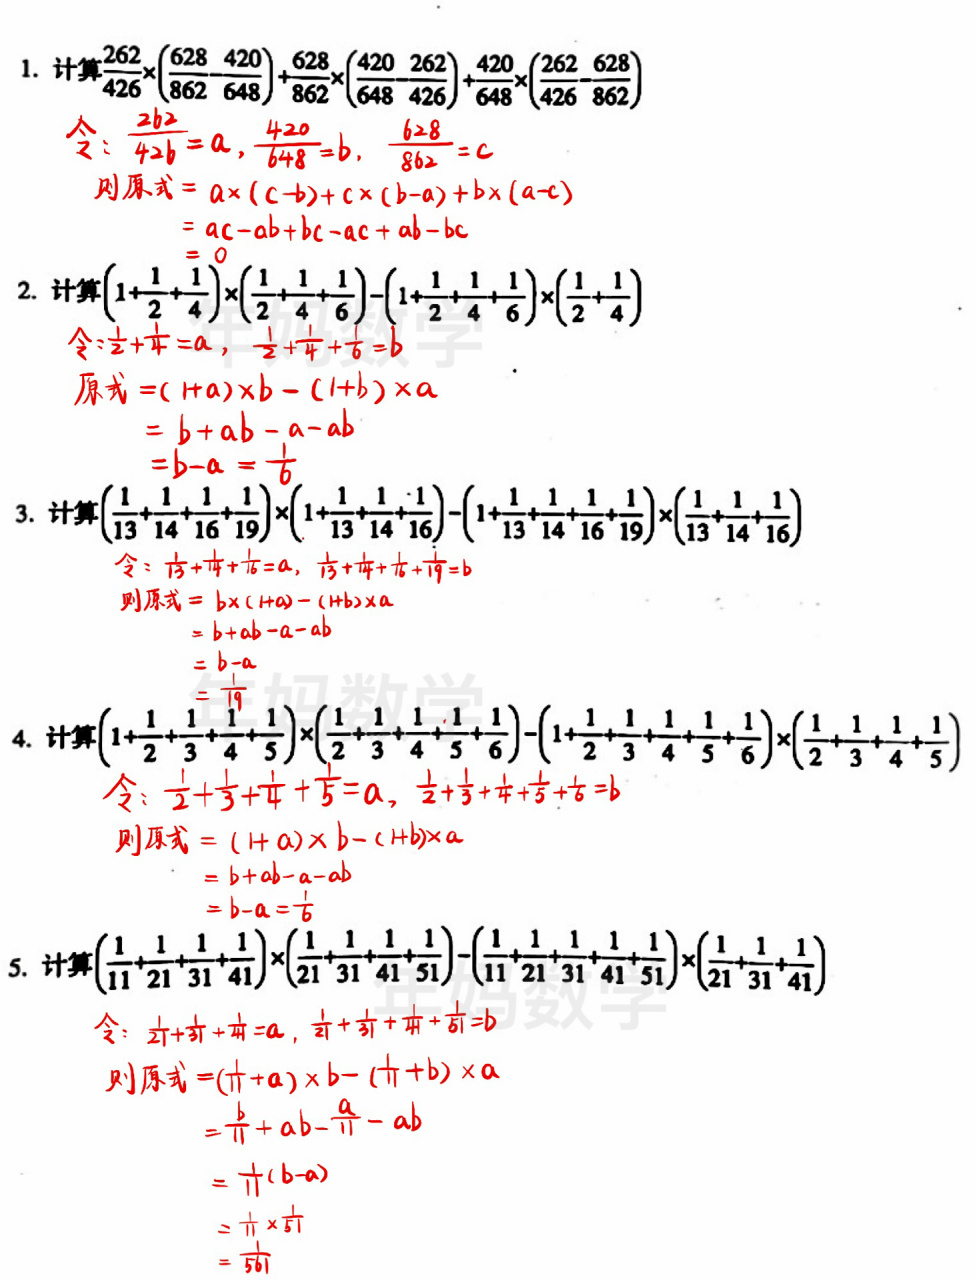 1. 计算262/426×(628/862-420/648)+628/862×(420/648-262/426)+420/648×(262/426-628/862)
令: 262/426=a, 420/648=b, 628/862=c
则原式=a×(c-b)+c×(b-a)+b×(a-c)
=ac-ab+bc-ac+ab-bc
=0
2. 计算(1+1/2+1/4)×(1/2+1/4+1/6)-(1+1/2+1/4+1/6)×(1/2+1/4)
令:1/2+1/4=a, 1/2+1/4+1/6=b
原式=(1+a)×b-(1+b)×a
=b+ab-a-ab
=b-a=1/6
年妈数学
3. 计算(1/13+1/14+1/16+1/19)×(1+1/13+1/14+1/16)-(1+1/13+1/14+1/16+1/19)×(1/13+1/14+1/16)
令: 1/13+1/14+1/16=a, 1/13+1/14+1/16+1/19=b
则原式=b×(1+a)-(1+b)×a
=b+ab-a-ab
=b-a
=1/19
年妈数学
4. 计算(1+1/2+1/3+1/4+1/5)×(1/2+1/3+1/4+1/5+1/6)-(1+1/2+1/3+1/4+1/5+1/6)×(1/2+1/3+1/4+1/5)
令: 1/2+1/3+1/4+1/5=a, 1/2+1/3+1/4+1/5+1/6=b
则原式=(1+a)×b-(1+b)×a
=b+ab-a-ab
=b-a=1/6
5. 计算(1/11+1/21+1/31+1/41)×(1/21+1/31+1/41+1/51)-(1/11+1/21+1/31+1/41+1/51)×(1/21+1/31+1/41)
年妈数学
令: 1/21+1/31+1/41=a, 1/21+1/31+1/41+1/51=b
则原式=(1/11+a)×b-(1/11+b)×a
=b/11+ab-a/11-ab
=1/11(b-a)
=1/11×1/51
=1/561